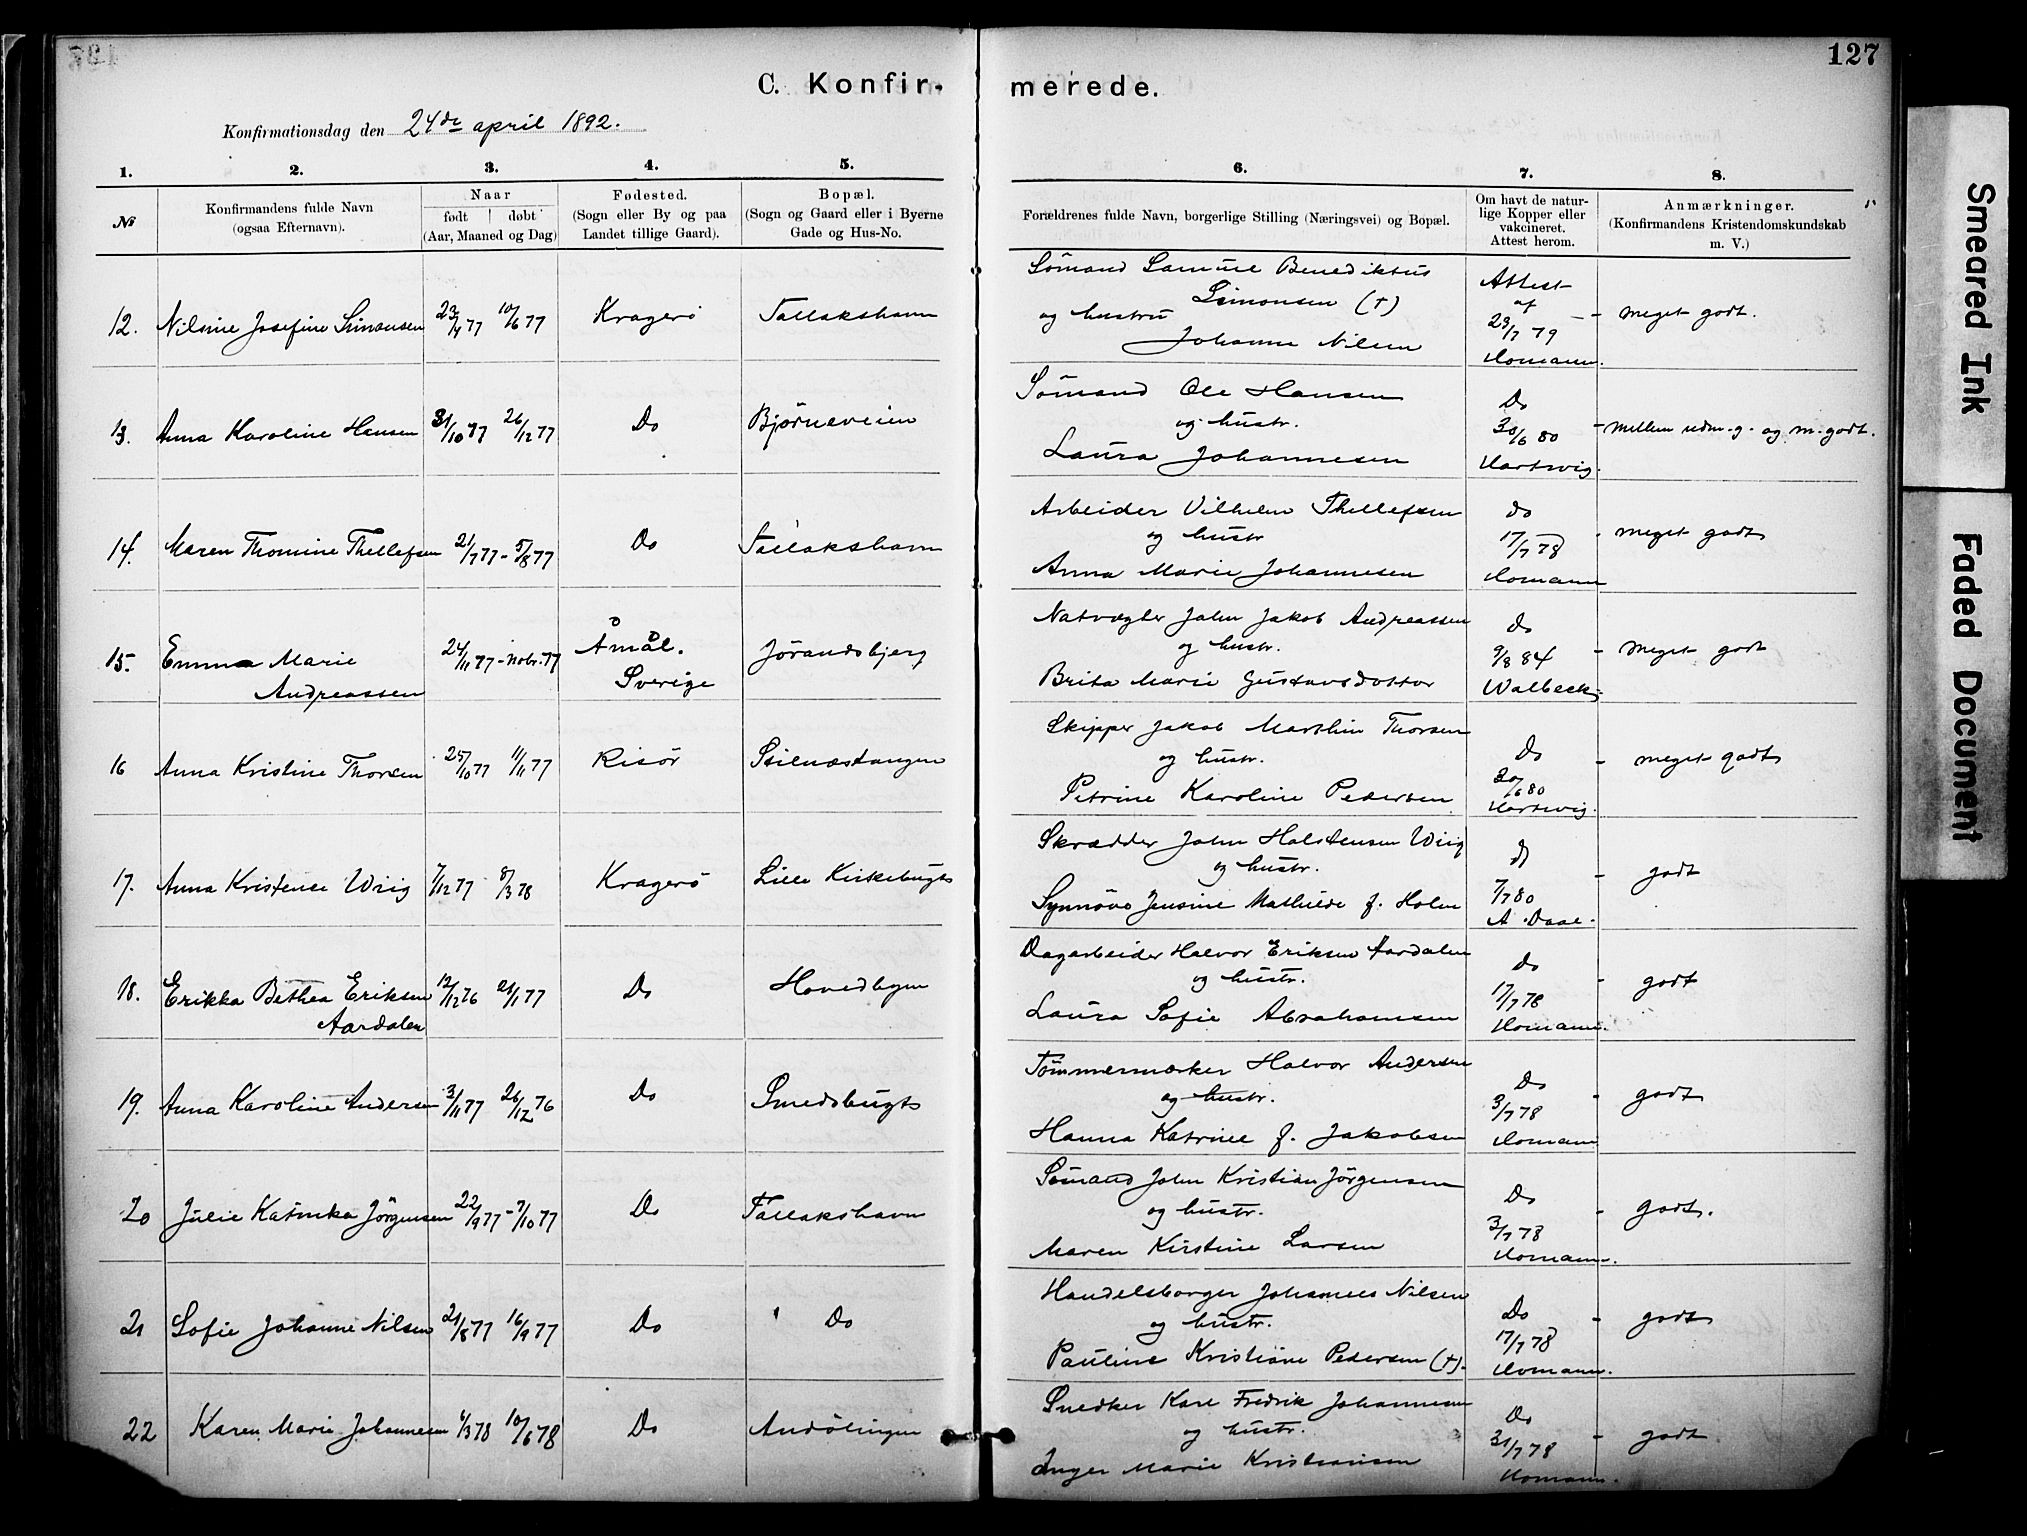 127
C. Konfirmerede.
Konfirmationsdag den 24de april 1892.
1. 2. 3. 4. 5. 6. 7. 8.
№
Konfirmandens fulde Navn (ogsaa Efternavn).
Naar født | døbt (Aar, Maaned og Dag)
Fødested. (Sogn eller By og paa Landet tillige Gaard).
Bopæl. (Sogn og Gaard eller i Byerne Gade og Hus-No.
Forældrenes fulde Navn, borgerlige Stilling (Næringsvei) og Bopæl.
Om havt de naturlige Kopper eller vakcineret. Attest herom.
Anmærkninger. (Konfirmandens Kristendomskundskab m. V.)
12. Nilsine Josefine Simonsen 23/4 77 10/6 77 Kragerö Tallakshavn
Sömand Samuel Benediktus Simonsen (†)
og hustru
Johanne Nilsen
Attest af 23/7 79 Homann. - meget godt.
13. Anna Karoline Hansen 31/10 77 26/12 77 Do Bjørneveien
Sömand Ole Hansen
og hustr.
Laura Johannesen
Do 30/6 80 Hartwig. - mellem udm. g. og m. godt.
14. Maren Thomine Thellefsen 21/7 77 - 5/8 77 Do Tallakshavn
Arbeider Vilhelm Thellefsen
og hustr
Anna Marie Johannesen
do 17/7 78 Homann - meget godt
15. Emma Marie Andreassen 24/11 77 - Nobr. 77 Åmål. Sverige Jørandsbjerg
Natvægter John Jakob Andreassen
og hustr.
Brita Marie Gustavsdotter
Do 9/8 84 Walbeck. - meget godt
16 Anna Kristine Thorsen 25/10 77 11/11 77 Risör Stilnæstangen
Skipper Jakob Marthin Thorsen
og hustr.
Petrine Karoline Pedersen
Do 30/6 80 Hartwig. - meget godt
17. Anna Kristense Wriig 7/12 77 8/3 78 Kragerö Lille Kirkebugt
Skrædder John Holstensen Wriig
og hustr.
Synnöve Jensine Mathilde f. Holm
do 7/7 80 A. Daae. - godt
18. Erikka Bethea Eriksen Aardalen 12/12 76 21/1 77 Do Hovedbyen
Dagarbeider Halvor Eriksen Aardalen
og hustr.
Laura Sofie Abrahamsen
Do 17/7 78 Homann. - godt
19. Anna Karoline Andersen 3/11 77 26/12 76 Do Smedsbugt
Tömmermærker Halvor Andersen
og hustr.
Hanna Katrine f. Jakobsen
Do 3/7 78 Homann - godt
20 Julie Katinka Jörgensen 22/9 77 - 7/10 77 Do Tallakshavn
Sömand John Kristian Jörgensen
og hustr.
Maren Kirstine Larsen
Do 3/7 78 Homann. - godt.
21 Sofie Johanne Nilsen 21/8 77 16/9 77 Do Do
Handelsborger Johannes Nilsen
og hustr.
Pauline Kristiane Pedersen (†).
Do 17/7 78 Homann. - godt
22 Karen Marie Johannesen 6/3 78 10/6 78 Do Andölingen
Snedker Karl Fredrik Johannesen
og hustr.
Inger Marie Kristiansen
Do 31/7 78 Homann. - godt
Smeared Ink
Faded Document